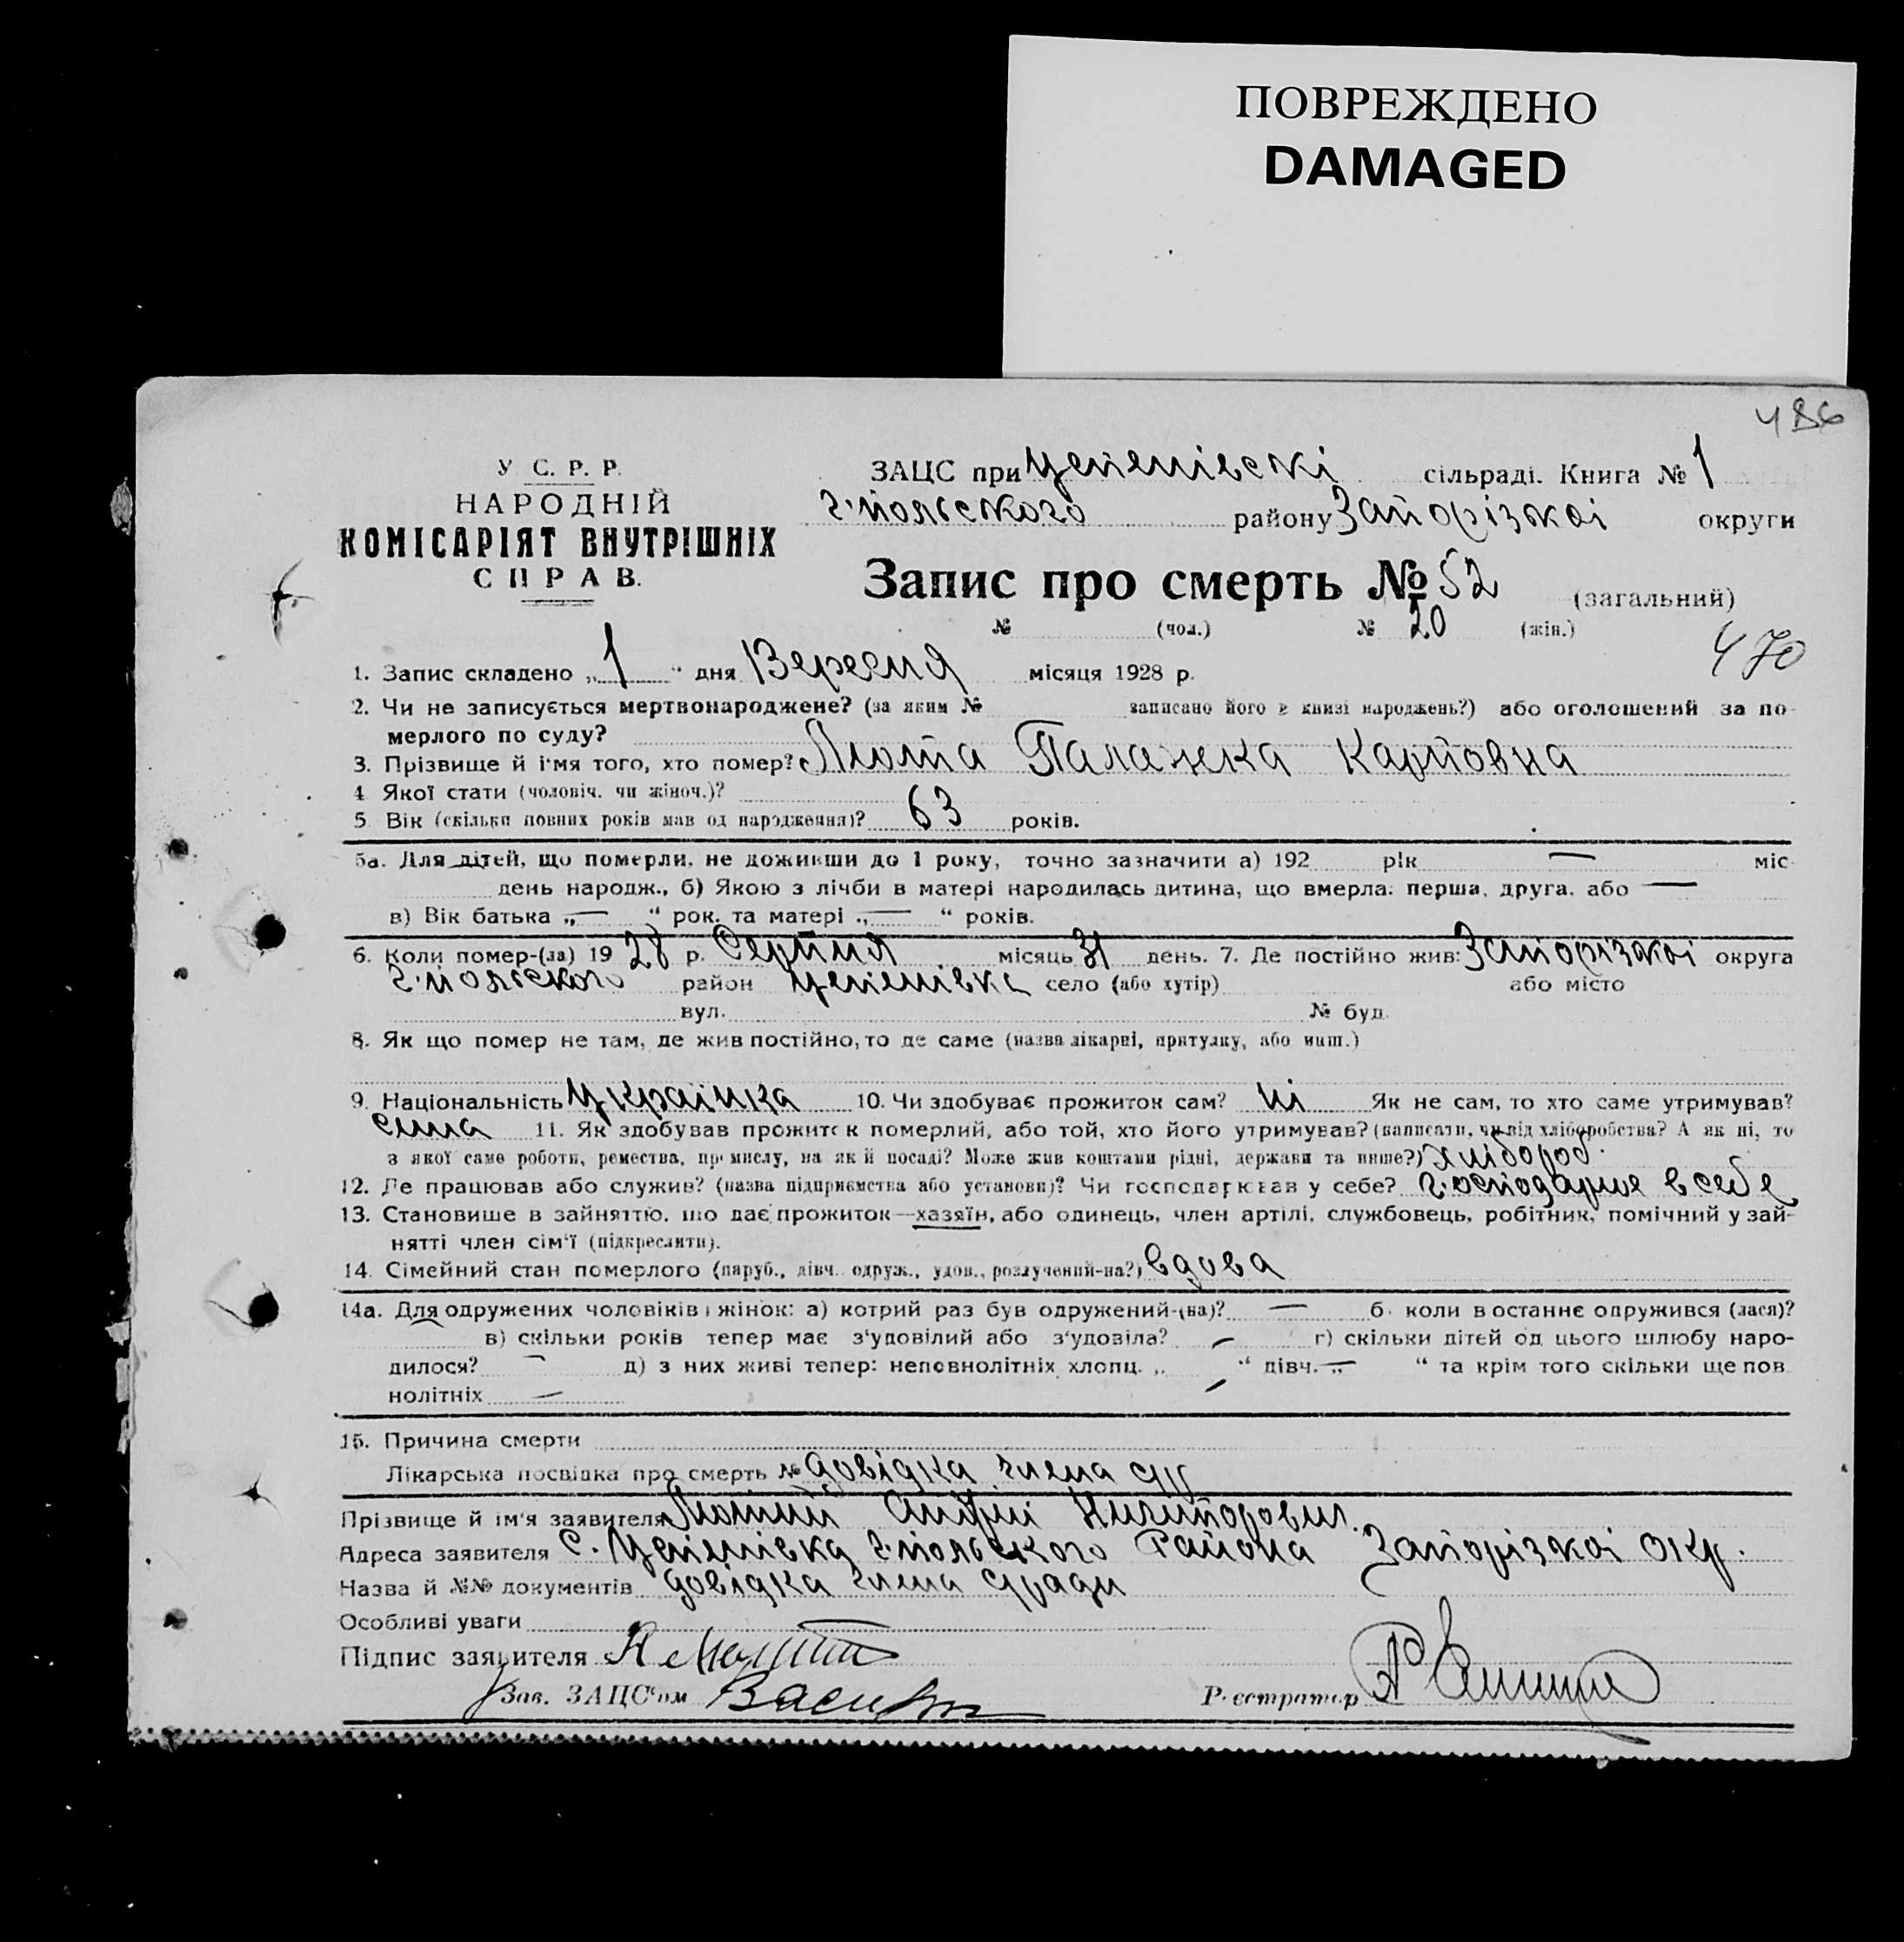 ПОВРЕЖДЕНО
DAMAGED
У С. Р. Р.
НАРОДНІЙ
КОМІСАРІЯТ ВНУТРІШНІХ
СПРАВ.
ЗАЦС при сільраді. Книга № 1
Г-польского району Запорізкоі округи
Запис про смерть № 52 (загальний)
№ (чол.) № 20 (жін.)
470
1. Запис складено „ 1 “ дня Вересня місяця 1928 р.
2. Чи не записується мертвонароджене? (за яким № записано його в книзі народжень?) або оголошений за по-
мерлого по суду?
3. Прізвище й ім'я того, хто помер? Люта Палажка Карповна
4 Якої стати (чоловіч. чи жіноч.)?
5 Вік (скільки повних років мав од народження)? 63 років.
5а. Для дітей, що померли, не доживши до 1 року, точно зазначити а) 192 рік — міс
день народж., б) Якою з лічби в матері народилась дитина, що вмерла: перша, друга, або —
в) Вік батька „ — “ рок. та матері „ — “ років.
6. Коли помер-(ла) 19 28 р. Серпня місяць 31 день. 7. Де постійно жив: Запорізкоі округа
Г-польского район село (або хутір) або місто
вул. № буд.
8. Як що помер не там, де жив постійно, то де саме (назва лікарні, притулку, або инш.)
9. Національність Українка 10. Чи здобуває прожиток сам? ні Як не сам, то хто саме утримував?
сина 11. Як здобував прожиток померлий, або той, хто його утримував? (написати, чи від хліборобства? А як ні, то
з якої саме роботи, ремества, промислу, на якій посаді? Може жив коштами рідні, держави та инше?) хлібороб.
12. Де працював або служив? (назва підприємства або установи)? Чи господарював у себе? господарня в себе
13. Становище в зайняттю, що дає прожиток—хазяїн, або одинець, член артілі, службовець, робітник, помічний у зай-
нятті член сім'ї (підкреслити).
14. Сімейний стан померлого (паруб., дівч. одруж., удов., розлучений-на?) вдова
14а. Для одружених чоловіків і жінок: а) котрий раз був одружений-(на)? — б. коли в останнє одружився (лася)?
в) скільки років тепер має з'удовілий або з'удовіла? — г) скільки дітей од цього шлюбу наро-
дилося? — д) з них живі тепер: неповнолітніх хлопц. „ “ дівч. „ — “ та крім того скільки ще пов
нолітніх —
15. Причина смерти
Лікарська посвідка про смерть № довідка члена с/р
Прізвище й ім'я заявителя Лютий Андрій
Адреса заявителя с. Г-польского Района Запорізкоі окр.
Назва й №№ документів довідка члена с/ради
Особливі уваги
Підпис заявителя
Зав. ЗАЦС'ом
Реєстратор